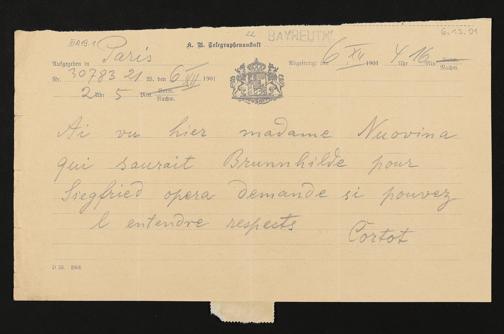 BAYREUTH
6.12.01
IIIA19.1
K. B. Telegraphenanstalt
Aufgegeben in Paris
Abgefertigt: 6 XII 1901 4 Uhr 16 Min. Vorm. Nachm.
Nr. 30783 21 W. den 6 XII 1901
2 Uhr 5 Min. Vorm. Nachm.
Ai vu hier madame Nuovina
qui saurait Brunnhilde pour
Siegfried opera demande si pouvez
l entendre respects
Cortot